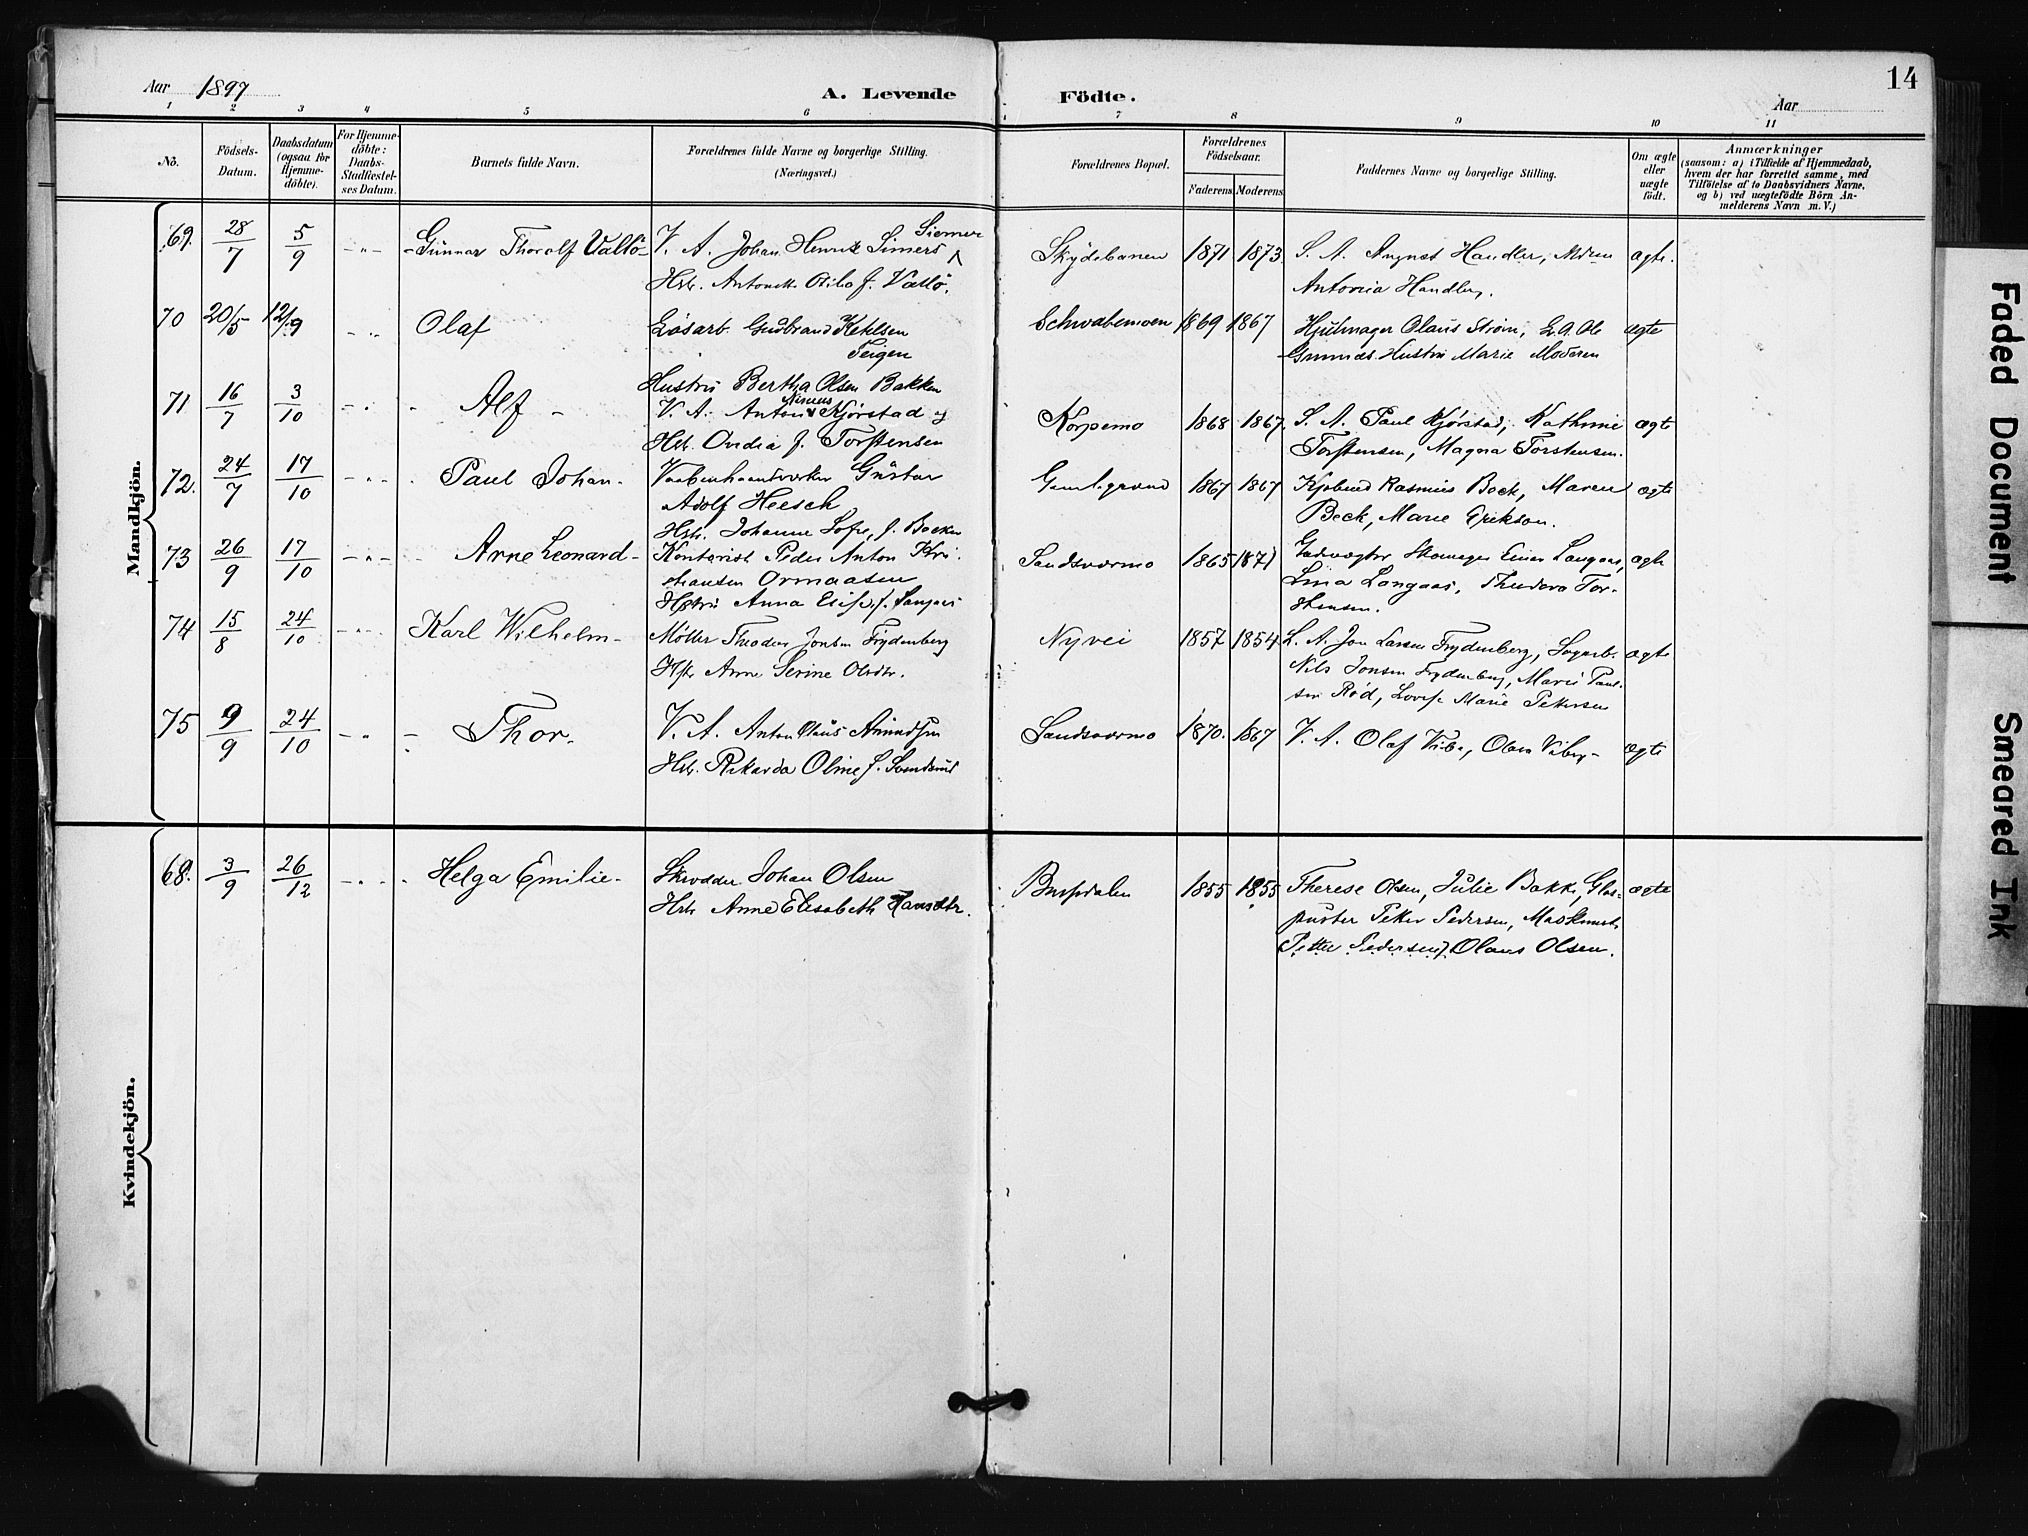 Aar 1897
A. Levende Födte.
Aar
14
1 2 3 4 5 6 7 8 9 10 11
No.
Födsels-Datum.
Daabsdatum (ogsaa for Hjemme-döbte).
For Hjemme-döbte: Daabs-Stadfæstel-ses Datum.
Barnets fulde Navn.
Forældrenes fulde Navne og borgerlige Stilling. (Næringsvei.)
Forældrenes Bopæl.
Forældrenes Födselsaar.
Faderens Moderens
Faddernes Navne og borgerlige Stilling.
Om ægte eller uægte födt.
Anmærkninger
(saasom: a) i Tilfælde af Hjemmedaab,
hvem der har forrettet samme, med
Tilföielse af to Daabsvidners Navne,
og b) ved uægtefödte Börn An-
melderens Navn m. V.)
Mandkjön.
69. 28/7 5/9 - " - Gunnar Thorolf Vallö V. A. Johan Henrik Simers Siemer
Hstr. Antonette Otilie f. Vallö.
Skydebanen 1871 1873. S. A. August Handler, Moren
Antonia Handberg. ægte.
70 20/5 12/9 Olaf Lösarb. Gudbrand Kehlsen
Teigen
Hustru Bertha Olsen Bakken
Schwabemoen 1869 1867 Hjulmager Olaus Ström, L. A. Ole
Gunnes. Hustru Marie Moderen ægte
71 16/7 3/10 Alf V. A. Anton Kjörstad og
Hstr. Ovidia f. Torstensen
Korpemo 1868 1867. S. A. Paul Kjörstad, Kathrine
Torstensen, Magna Torstensen. ægte
72. 24/7 17/10 Paul Johan Vaabenhaandverker Gustav
Adolf Heesch
Hstr. Johanne Sofie, f. Becken
Gamlegrend 1867 1867 Rasmus Beck, Maren
Beck, Marie Erikson. ægte
73 26/9 17/10 Arne Leonard Kontorist Peder Anton Kri-
stiansen Ormaasen
Hstru Anna Elise f. Langaas
Sandsværmo 1865 1871 Gadevægter Skomager Einar Langaas,
Lina Langaas, Thudora Tor-
stensen. ægte
74 15/8 24/10 Karl Wilhelm Möller Theodor Jonsen Frydenberg
Hstr Anne Serine Olsdtr.
Nyvei 1857 1854. L. A. Jon Larsen Frydenberg,
Nils Jonsen Frydenberg, Marie Paul-
sen Röd, Lovise Marie Pettersen ægte
75 9/9 24/10 Thor. V. A. Anton Olaus Amundsen
Hstr. Rikarda Oline f. Svendsrud
Sandsværmo 1870. 1867 V. A. Olaf Viberg, Olava Viberg ægte
Kvindekjön.
68. 3/9 26/12 Helga Emilie Skrædder Johan Olsen
Hstr. Anne Elisabeth Hansdtr.
Bussdalen 1855 1855 Therese Olsen, Julie Bakke, Glas-
puster Petter Pedersen, Maskinarb.
Petter Pedersen, Olaus Olsen. ægte
Faded Document
Smeared Ink